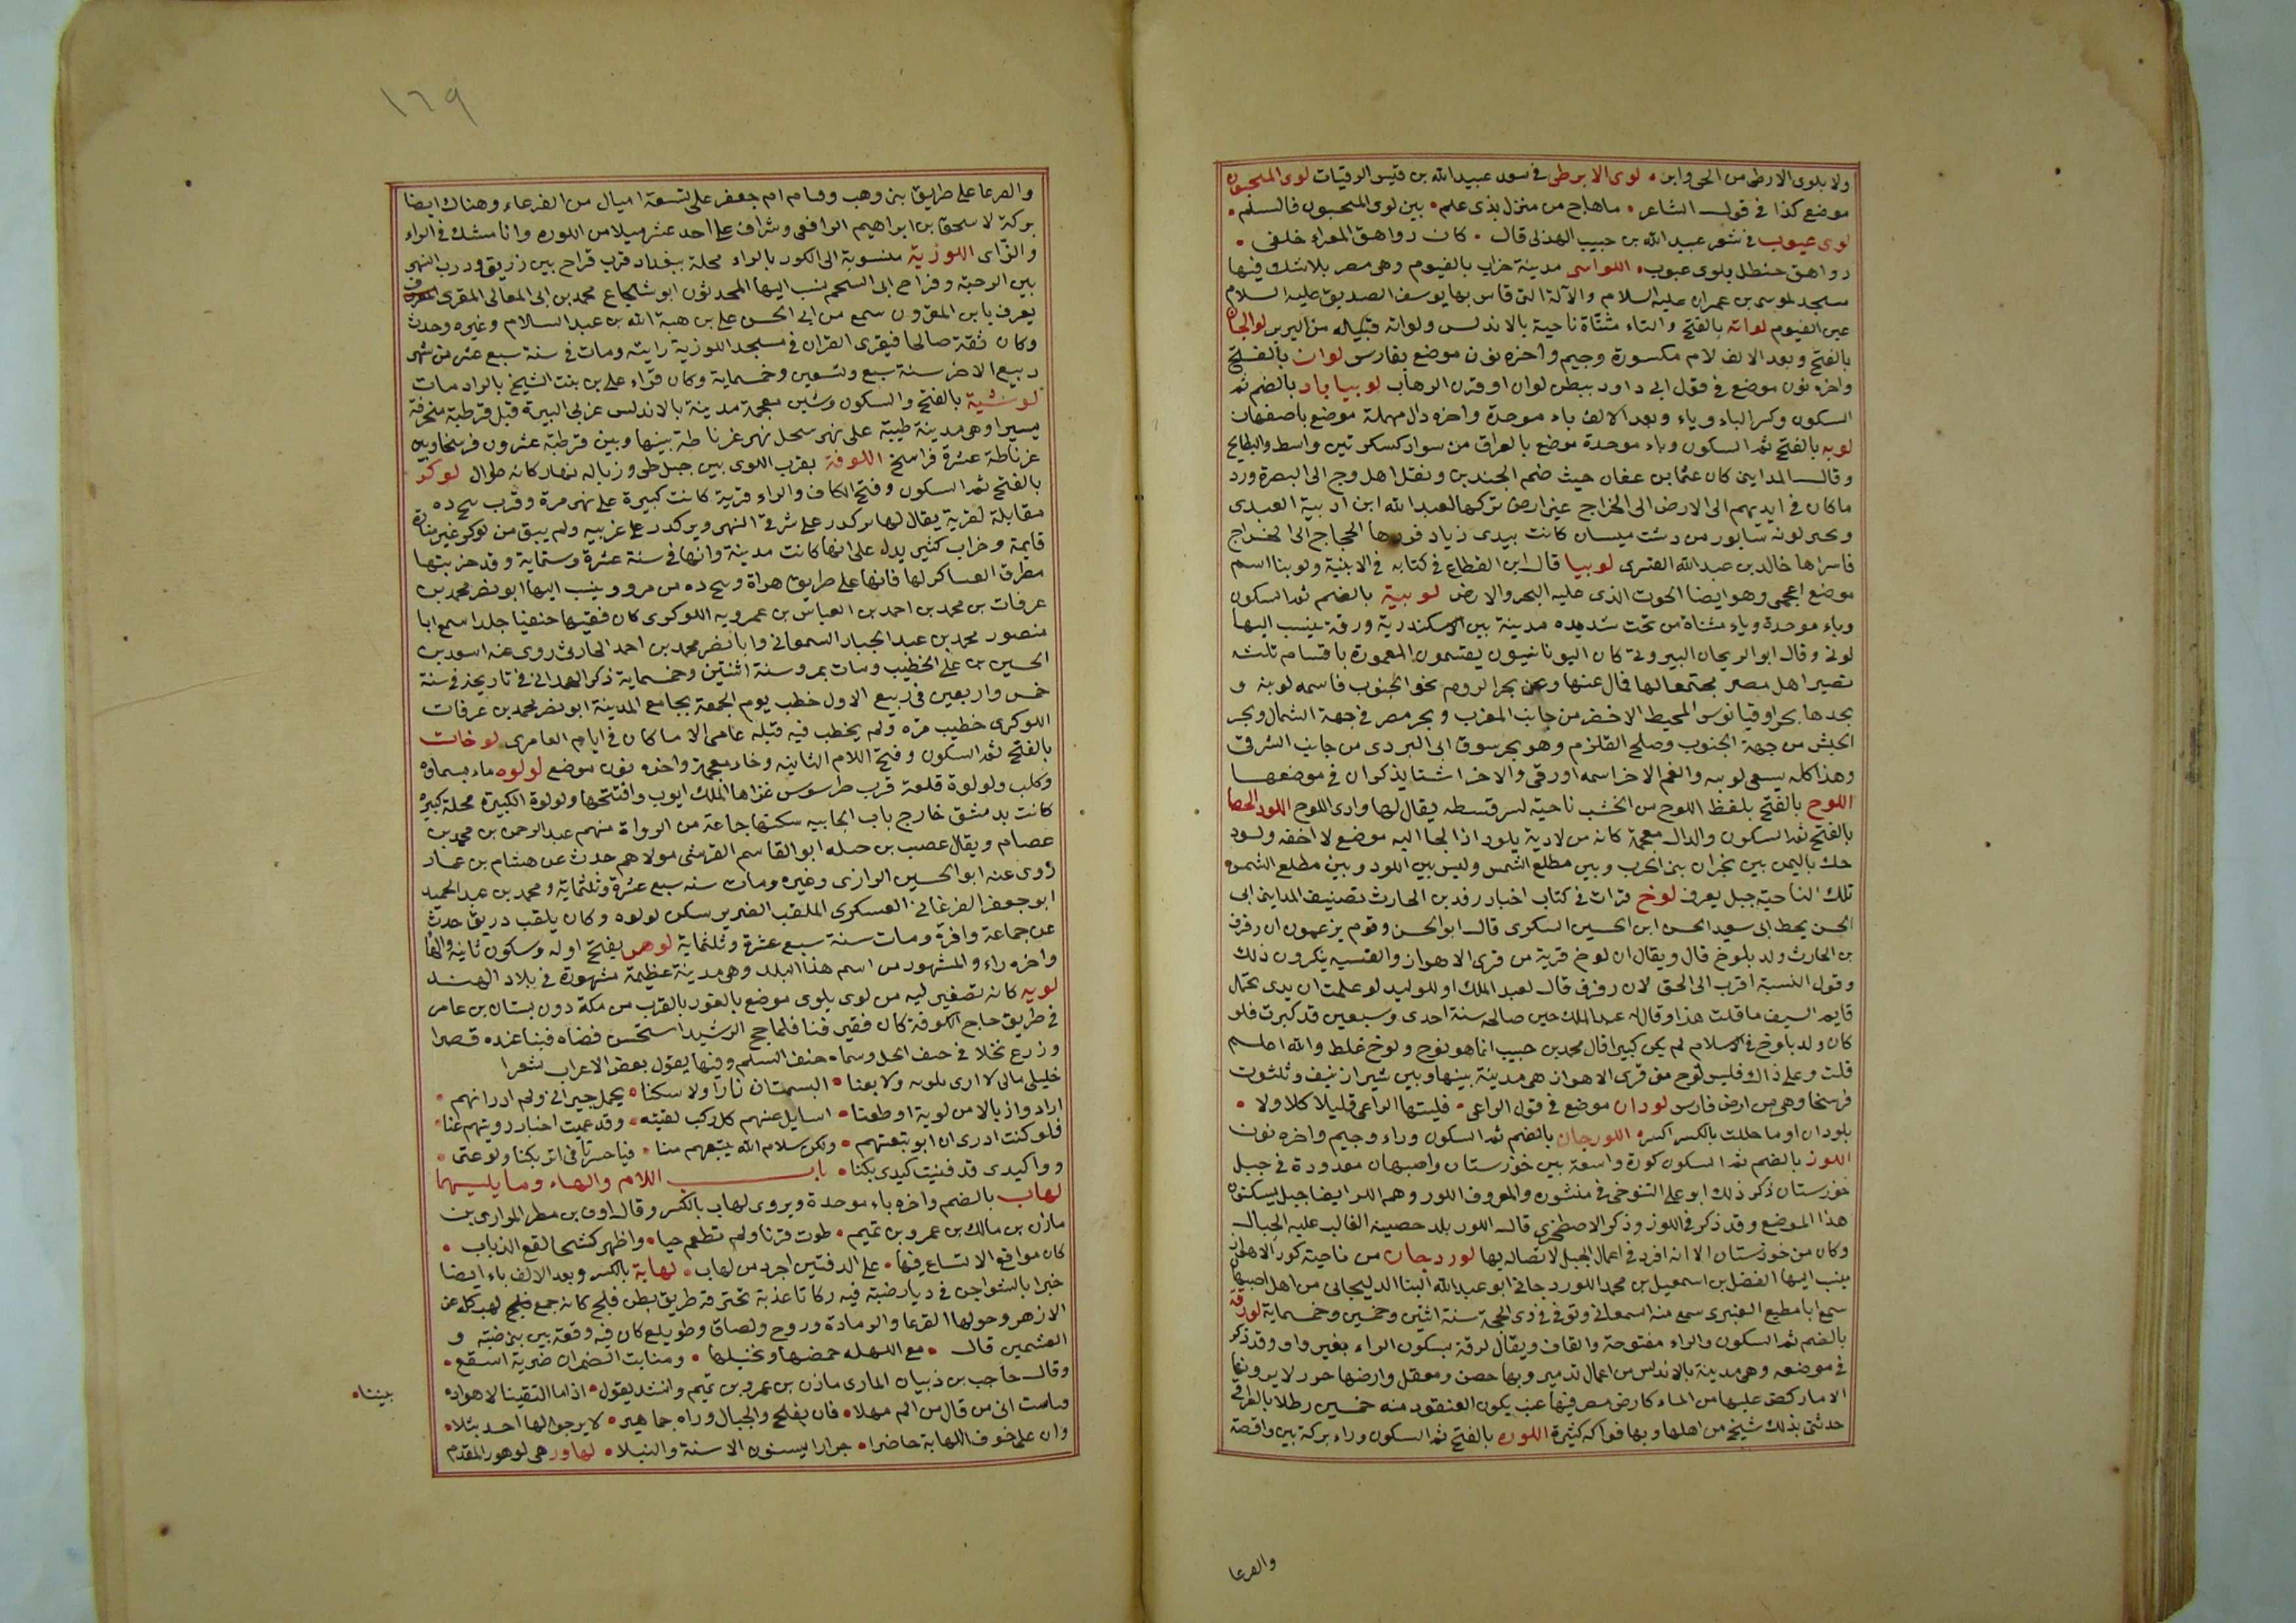 ولا بلوى الارطى من الحى وابن • لوى الابرطى فى سعد عبيد الله بن قيس الرقيات لوى المنجنون
موضع كذا فى قول الشاعر • ما هاج من منزل بذى علم • بين لوى المنجنون فالسلم •
لوى عيوب فى شعر عبد الله بن حبيب الهذلى قال • كان رواهق المعزاء خلفى •
رواهق حنظل بلوى عيوب • اللواسى مدينة خراب بالفيوم وهى مصر بلا شك فيها
مسجد لموسى بن عمران عليه السلام والآلة التى قاس بها يوسف الصديق عليه السلام
عين الفيوم لواته بالفتح والتاء مثناة ناحية بالاندلس ولواته قبيله من البربر لوالجان
بالفتح وبعد الالف لام مكسورة وجيم واخره نون موضع بفارس لوان بالفتح
واخره نون موضع فى قول ابى داود ببطن لوان او قرن الذهاب لوبياباد بالضم ثم
السكون وكسر الباء وياء وبعد الالف باء موحدة واخره دال مهملة موضع باصفهان
لوبه بالفتح ثم السكون وباء موحدة موضع بالعراق من سواد كسكر بين واسط والبطايح
وقال المداينى كان عثمان بن عفان حيث ضم الجندين ونقل اهل وج الى البصرة ورد
ما كان فى ايديهم الى الارض الى الخراج غير ارض تركها لعبد الله ابن ادبية العبدى
وعبر لونه سابور من دشت ميسان كانت بيدى زياد فردها الحجاج الى الخراج
فاسراها خالد بن عبد الله القسرى لوبيا قال ابن القطاع فى كتابه فى الابنية ولوبيا اسم
موضع اعجمى وهو ايضا الحوت الذى عليه البحر والارض لوبية بالضم ثم السكون
وباء موحدة وياء مثناة من تحت شديده مدينة بين الاسكندرية وبرقة ينسب اليها
لوبى وقال ابو الريحان البيرونى كان اليونانيون يقسمون المعمورة باقسام ثلثه
تصير اهل مصر مجتمعا لها فمال عنها وعن بحر الروم نحو الجنوب فاسمه لوبيه و
يحدها بحر اوقيانوس المحيط الاخضر من جانب المغرب وبحر مصر فى جهة الشمال وبحر
الحبش من جهة الجنوب وخليج القلزم وهو بحر سوف اى البردى من جانب الشرق
وهذا كله يسمى لوبيه والقسم الاخر اسمه اورقى والاخر اشتا يذكران فى موضعهما
اللوح بالفتح بلفظ اللوح من الخشب ناحية لسرقسطه يقال لها وادى اللوح اللوذ الحصا
بالفتح ثم السكون والذال معجمة كانه من لاذ به يلوذ اذا لجا اليه موضع لا احقه ولوذ
جبل باليمن بين نجران بنى الحرب وبين مطلع الشمس وليس بين اللوذ وبين مطلع الشمس
تلك الناحية جبل يعرف لوخ قرات فى كتاب اخبار زفر بن الحارث تصنيف المداينى ابى
الحسن بخط ابى سعيد الحسن ابن الحسين السكرى قال ابو الحسن وقوم يزعمون ان زفر
بن الحارث ولد بلوخ قال ويقال ان لوخ قرية من قرى الاهواز والقيسيه ينكرون ذلك
وقول النسبة اقرب الى الحق لان زفر فى قال لعبد الملك او للوليد لو علمت ان يدى تحتمل
قايم السيف ما قلت هذا وقال له عبد الملك حين صالحه سنة احدى وسبعين قد كبرت فلو
كان ولد بلوخ فى الاسلام لم يكن كبيرا قال محمد بن حبيب انما هو نوح ولوخ غلط والله اعلم
قلت وعلى ذاك فليس توج من قرى الاهواز هى مدينة بينها وبين شيراز نيف وثلثون
فرسخا وهى من ارض فارس لودان موضع فى قول الراعى • فليتها الراعى قليلا كلا ولا •
بلودان او ما حللت بالكسر اكبره اللورجان بالضم ثم السكون وراء وجيم واخره نون
اللوز بالضم ثم السكون كورة واسعة بين خوزستان واصبهان معدودة فى جبل
خوزستان ذكر ذلك ابو على التنوخى فى منشوره والمعروف اللور وهم اللر ايضا جبل يسكنون
هذا الموضع وقد ذكر فى اللوز وذكر الاصطخرى قال اللور بلد خصيبه الغالب عليه الجبال
وكان من خوزستان الا انه افرد فى اعمال الجبل لاتصاله بها لوردجان من ناحية كور الاهواز
ينسب اليها الفضل بن اسمعيل بن محمد اللوردجانى ابو عبد الله البنا الدليجانى من اهل اصبهان
سمع ابا مطيع العنبرى سمع منه السمعانى وتوفى فى ذى الحجة سنة اثنين وخمسين وخمسماية لورقة
بالضم ثم السكون والراء مفتوحة والقاف ويقال لرقة بسكون الراء بغير واو وقد ذكر
فى موضعه وهى مدينة بالاندلس من اعمال تدمير وبها حصن ومعقل وارضها جرز لا يرويها
الا ما ركض عليها من الماء كارض مصر فيها عنب يكون العنقود منه خمسين رطلا بالعراقى
حدثنى بذلك شيخ من اهلها وبها فواكه كثيرة اللوره بالفتح ثم السكون وراء بركة بين واقصة
والقرعا
١٦٩
والقرعا على طريق بنى وهب وقسام ام جعفر على تسعة اميال من القرعاء وهناك ايضا
بركة لاسحق بن ابراهيم الرافعى وشراف على احد عشر ميلا من اللوره وانا مشك فى الراء
والزاى اللوزية منسوبة الى اللوز بالزاء محلة ببغداد قرب قراح بين زريق ودرب النهر
بين الرحبة وقراح ابى الشحم ينسب اليها المحدثون ابو شجاع محمد بن ابى المعالى المقرى
يعرف بابن المقرون سمع من ابى الحسن على بن هبة الله بن عبد السلام وغيره وحدث
وكان ثقة صالحا فيقرى القران فى مسجد اللوزية رايته ومات فى سنة سبع عشر من شهر
ربيع الاخر سنة سبع وتسعين وخمسماية وكان قراء على بن بنت الشيخ بالراد مات
لوشية بالفتح والسكون وشين معجمة مدينة بالاندلس غربى البيرة قبل قرطبة منحرفة
يسيرا وهى مدينة طيبة على نهر سنجل نهر غرناطة بينها وبين قرطبة عشرون فرسخا وبين
غرناطة عشرة فراسخ اللوفة بقرب اللوى بين جبل طى وزباله بها ركايا طوال لوكر
بالفتح ثم السكون وفتح الكاف والراء قرية كانت كبيرة على نهر مرو قرب بنج ده
مقابلة لقرية يقال لها بركدر على شرقى النهر وبركدر على غربيه ولم يبق من لوكر غير منارة
قايمة وخراب كثير يدل على انها كانت مدينة وانها فى سنة عشرة وستماية وقد خربتها
مطرق العساكر لها فانها على طريق هراة وبنج ده من مرو وينسب اليها ابو نصر محمد بن
عرفات بن محمد بن احمد بن العباس بن عمرويه اللوكرى كان فقيها حنفيا جلدا سمع ابا
منصور محمد بن عبد الجبار السمعانى وابا نصر محمد بن احمد الحارثى روى عنه اسعد بن
الحسين بن على الخطيب ومات بمرو سنة اثنتين وخمسماية ذكر الهمدانى فى تاريخه فى سنة
خمس واربعين فى ربيع الاول خطب يوم الجمعة بجامع المدينة ابو نصر محمد بن عرفات
اللوكرى خطيب مرو ولم يخطب فيه قبله عامى الا ما كان فى ايام العامرى لوخان
بالفتح ثم السكون وفتح اللام الثانيه وخاء معجمة واخره نون موضع لولوه ماء بسماوة
وكلب ولولوة قلعة قرب طرسوس غزاها الملك ايوب وافتتحها ولولوة الكبيرة محلة كبيرة
كانت بدمشق خارج باب الجابيه سكنها جماعة من الرواة منهم عبد الرحمن بن محمد بن
عصام ويقال عصيب بن جبله ابو القاسم القرشى مولاهم حدث عن هشام بن عمار
روى عنه ابو الحسين الرازى وغيره ومات سنه سبع عشرة وثلثماية ومحمد بن عبد الحميد
ابو جعفر الفرغانى العسكرى الملقب الضرير سكن لولوه وكان يلقب زريق حدث
عن جماعة وافرة ومات سنة سبع عشرة وثلثماية لوهور بفتح اوله وسكون ثانيه والهاء
واخره راء والمشهور من اسم هذا البلد وهى مدينة عظيمة مشهورة فى بلاد الهند
لويه كانه تصغير ليه من لوى يلوى موضع بالغور بالقرب من مكة دون بستان بن عامر
فى طريق حاج الكوفة كان فقير فنا فلما حج الرشيد استحسن فضاه فبنا عنده قصرا
وزرع نخلا فى خيف الجبل وسماه خيف السلم وفيها يقول بعض الاعراب شعرا
خليلى مالى لا ارى بلويه ولا بفنا • البستان نارا ولا سكنا • تحمل جيرانى ولم ادر انهم •
ارادوا زيالا من لوية او ظعنا • اسايل عنهم كل ركب لقيته • وقد عميت اخبار رويتهم عنا •
فلو كنت ادرى ان ابو تبعتهم • ولكن سلام الله يتبعهم منا • فيا حسرتا فى اثر بكنا ولوعتى •
ووا كبدى قد فنيت كيدى بكنا • باب اللام والهاء وما يليهما
لهاب بالضم واخره باء موحدة ويروى لهاب بالكسر وقال اوفى بن مطر الموارى بن
مازن بن مالك بن عمرو بن تميم • طوت قرنا ولم تطعم حيا • واظهر كشحا لقع الذباب •
كان مواقع الاتساع فيها • على الدفتين اجرد من لهاب • لهابة بالكسر وبعد الالف باء ايضا
خبرا بالشواجن فى ديار ضبة فيه ركايا عذبة تخترقه طريق بطن فلج كانه جمع لهب كله عن
الازهر وحولها القرعا والرمادة وروج ولصاف وطويلع كان فيه وقعة بين بنى ضبة و
العشمين قال • مع اللهله حمضها ونخيلها • ومنابت الضمران ضربة اسقع •
وقال حاجب بن ذبيان المارى مازن بن عمرو بن تميم وانشد يقول • اذا ما التقينا لا هوادة
بيننا •
وباست انى من قال من الم مهلا • فان بفلج والجبال وراه جماهير • لا يرجو الها احد بتلا •
وان على خوف اللهابة حاضرا • جرارا يسنون الاسنة والنبلا • لهاور هى لوهور المقدم